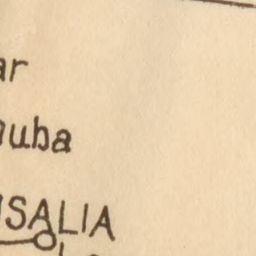 ar
auba
ISALIA